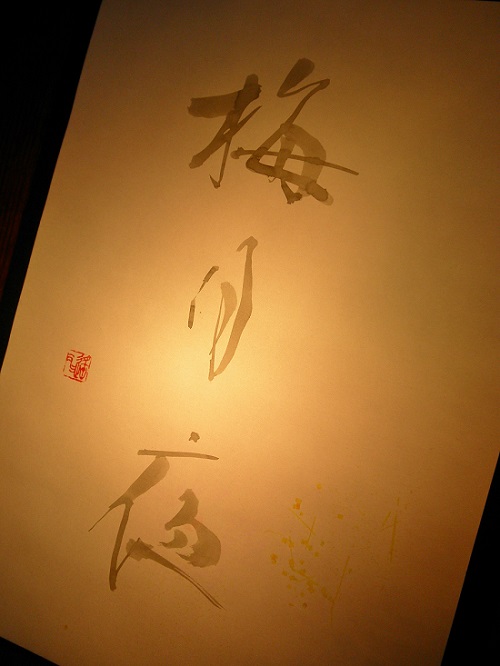 梅月夜